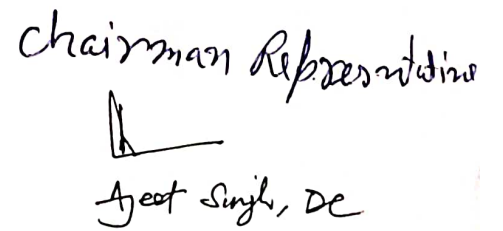 Chairman Representative
Ajeet Singh, DC